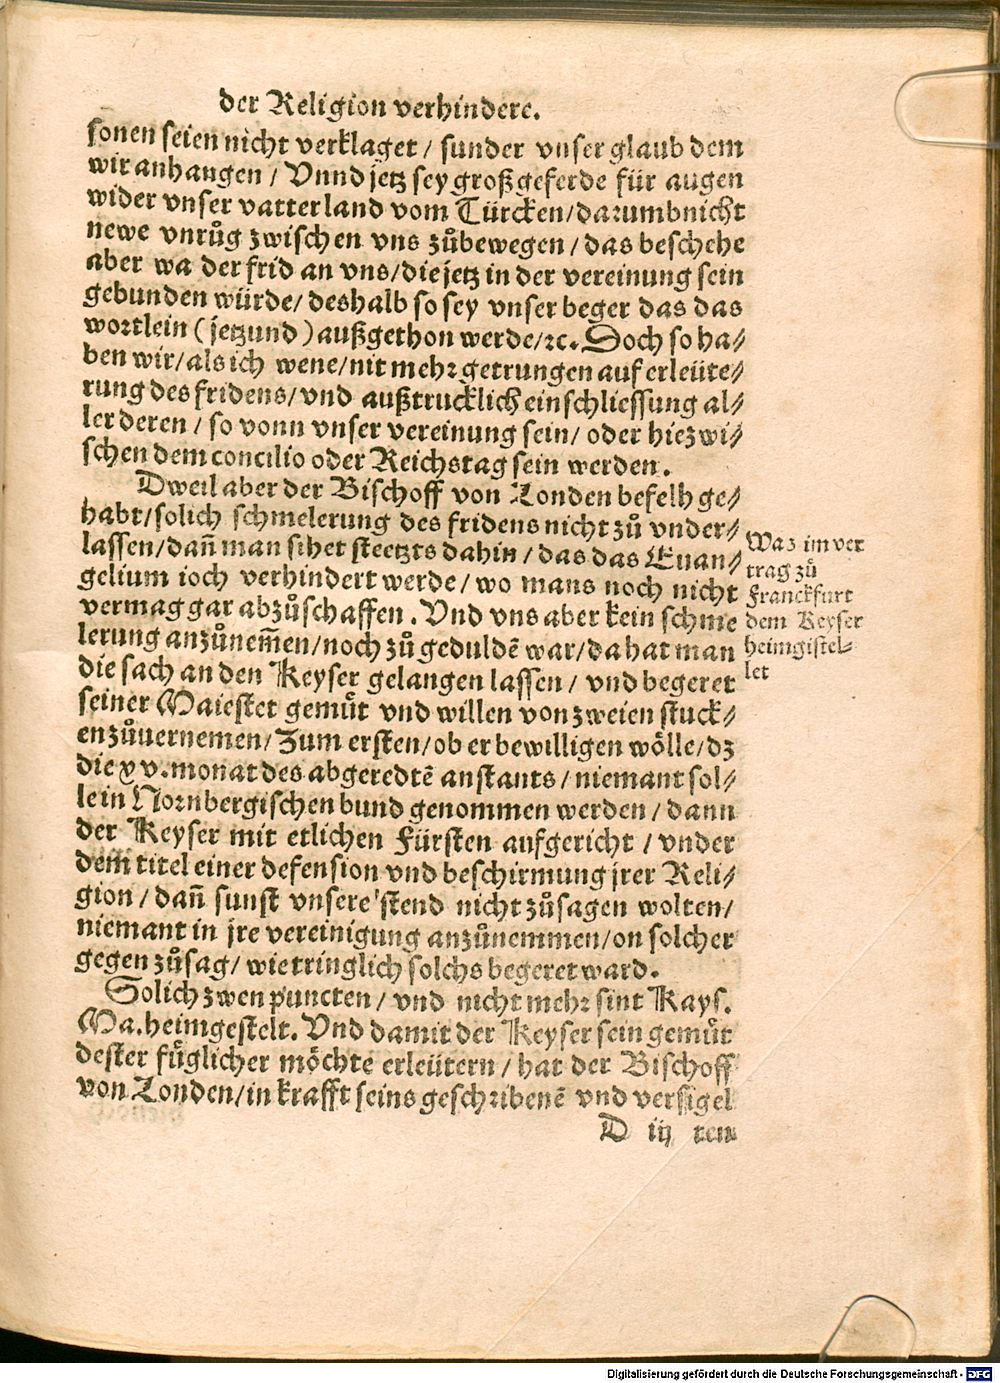 der Religion verhindere.
sonen seien nicht verklaget / sunder vnser glaub dem
wir anhangen / Vnnd jetz sey groß geferde für augen
wider vnser vatterland vom Türcken/darumb nicht
newe vnrůg zwischen vns zůbewegen / das beschehe
aber wa der frid an vns/die jetz in der vereinung sein
gebunden würde/ deshalb so sey vnser beger das das
wortlein ( jetzund ) außgethon werde/ꝛc. Doch so ha⸗/
ben wir/als ich wene/nit mehr getrungen auf erleüte⸗/
rung des fridens/vnd außtrucklich einschliessung al⸗/
ler deren / so vonn vnser vereinung sein/ oder hiezwi⸗/
schen dem concilio oder Reichstag sein werden.
Dweil aber der Bischoff von Londen befelh ge⸗/
habt/solich schmelerung des fridens nicht zů vnder⸗/
lassen/dañ man sihet steetzts dahin / das das Euan⸗/
gelium ioch verhindert werde/ wo mans noch nicht
vermag gar abzůschaffen. Vnd vns aber kein schme
lerung anzůnem̃en/noch zů geduldē war/da hat man
die sach an den Keyser gelangen lassen / vnd begeret
seiner Maiestet gemuͤt vnd willen von zweien stuck⸗/
en zůuernemen/ Zum ersten/ob er bewilligen wölle/dz
die xv. monat des abgeredtē anstants / niemant sol⸗/
le in Nornbergischen bund genommen werden / dann
der Keyser mit etlichen Fürsten aufgericht / vnder
dem titel einer defension vnd beschirmung jrer Reli⸗/
gion / dañ sunst vnsere stend nicht zůsagen wolten/
niemant in jre vereinigung anzůnemmen/on solcher
gegen zůsag/ wie tringlich solchs begeret ward.
Solich zwen puncten / vnd nicht mehr sint Kays.
Ma. heimgestelt. Vnd damit der Keyser sein gemuͤt
dester fuͤglicher möchte erleütern / hat der Bischoff
von Londen/in krafft seins geschribenē vnd versigel
D iij ten
Waz im ver
trag zů
Franckfurt
dem Keyser
heimgistel⸗
let
Digitalisierung gefördert durch die Deutsche Forschungsgemeinschaft - DFG